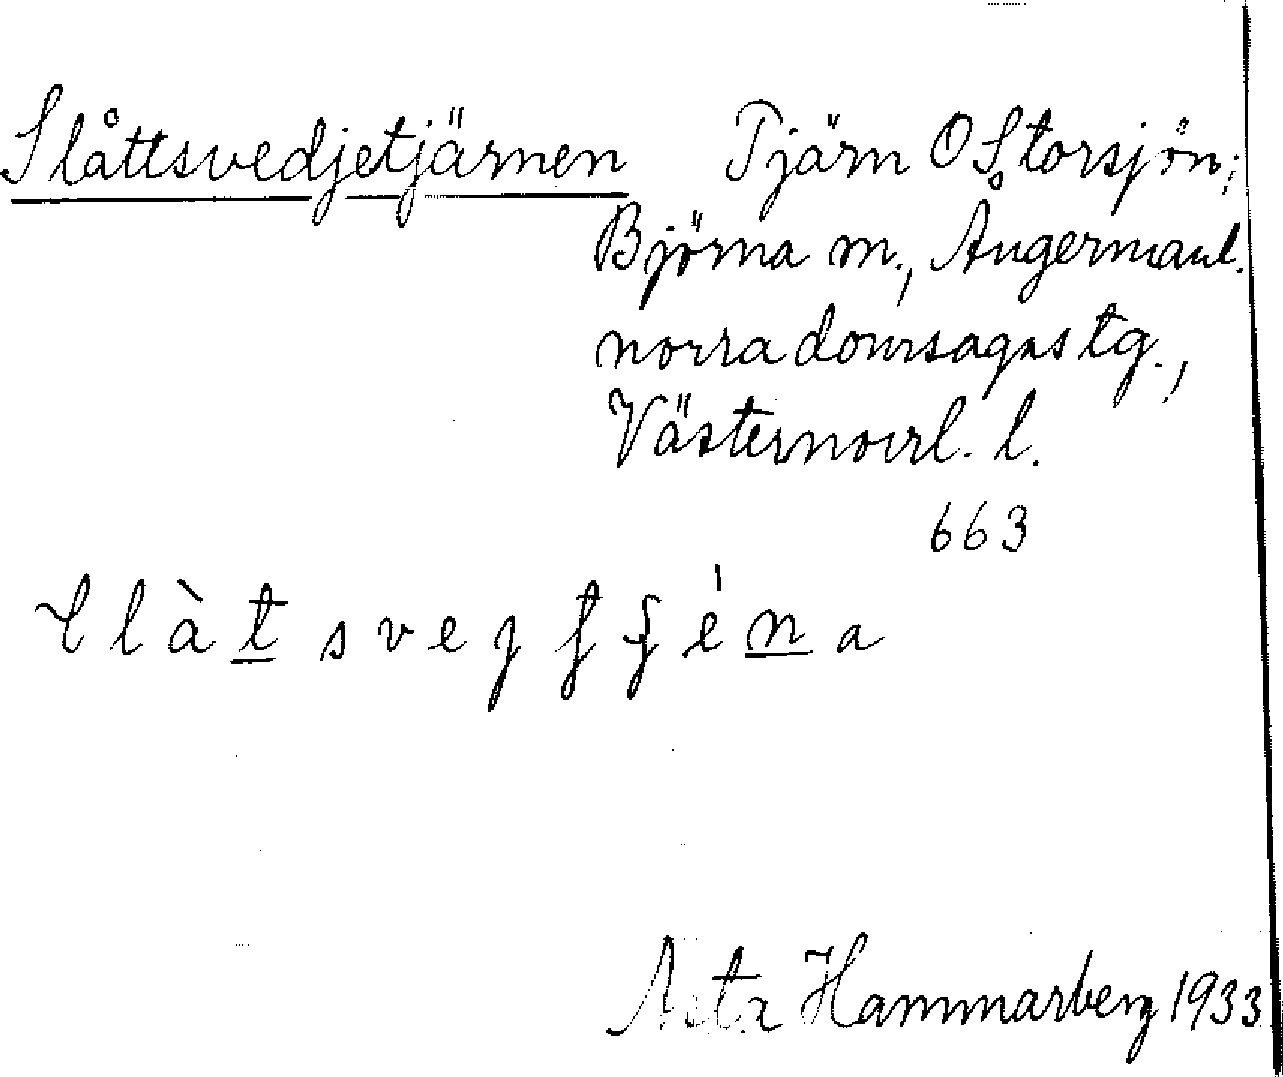 Slåttsvedjetjärnen Tjärn O Storsjön;
Björna m., Ångermanl.
norra domsagas tg.,
Västernorrl. l.
663
Hammarberg 1933